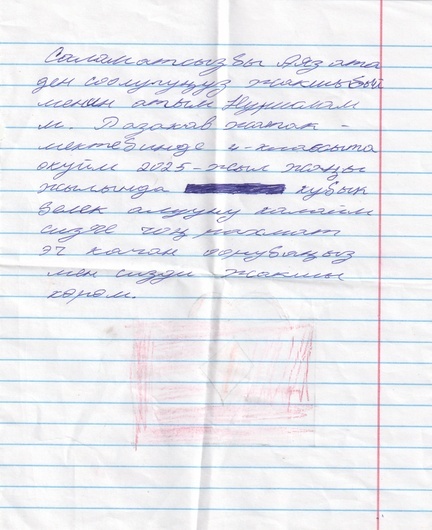 Саламатсызбы Аяз ата
ден соолугуңуз жакшыбы
менин атым Нурислам
м.
мектебинде 4-класста
окуйм 2025-жыл жаңы
жылында кубик
белек алууну каалайм
сизге чоң рахмат
эч качан оорубаңыз
мен сизди жакшы
көрөм.